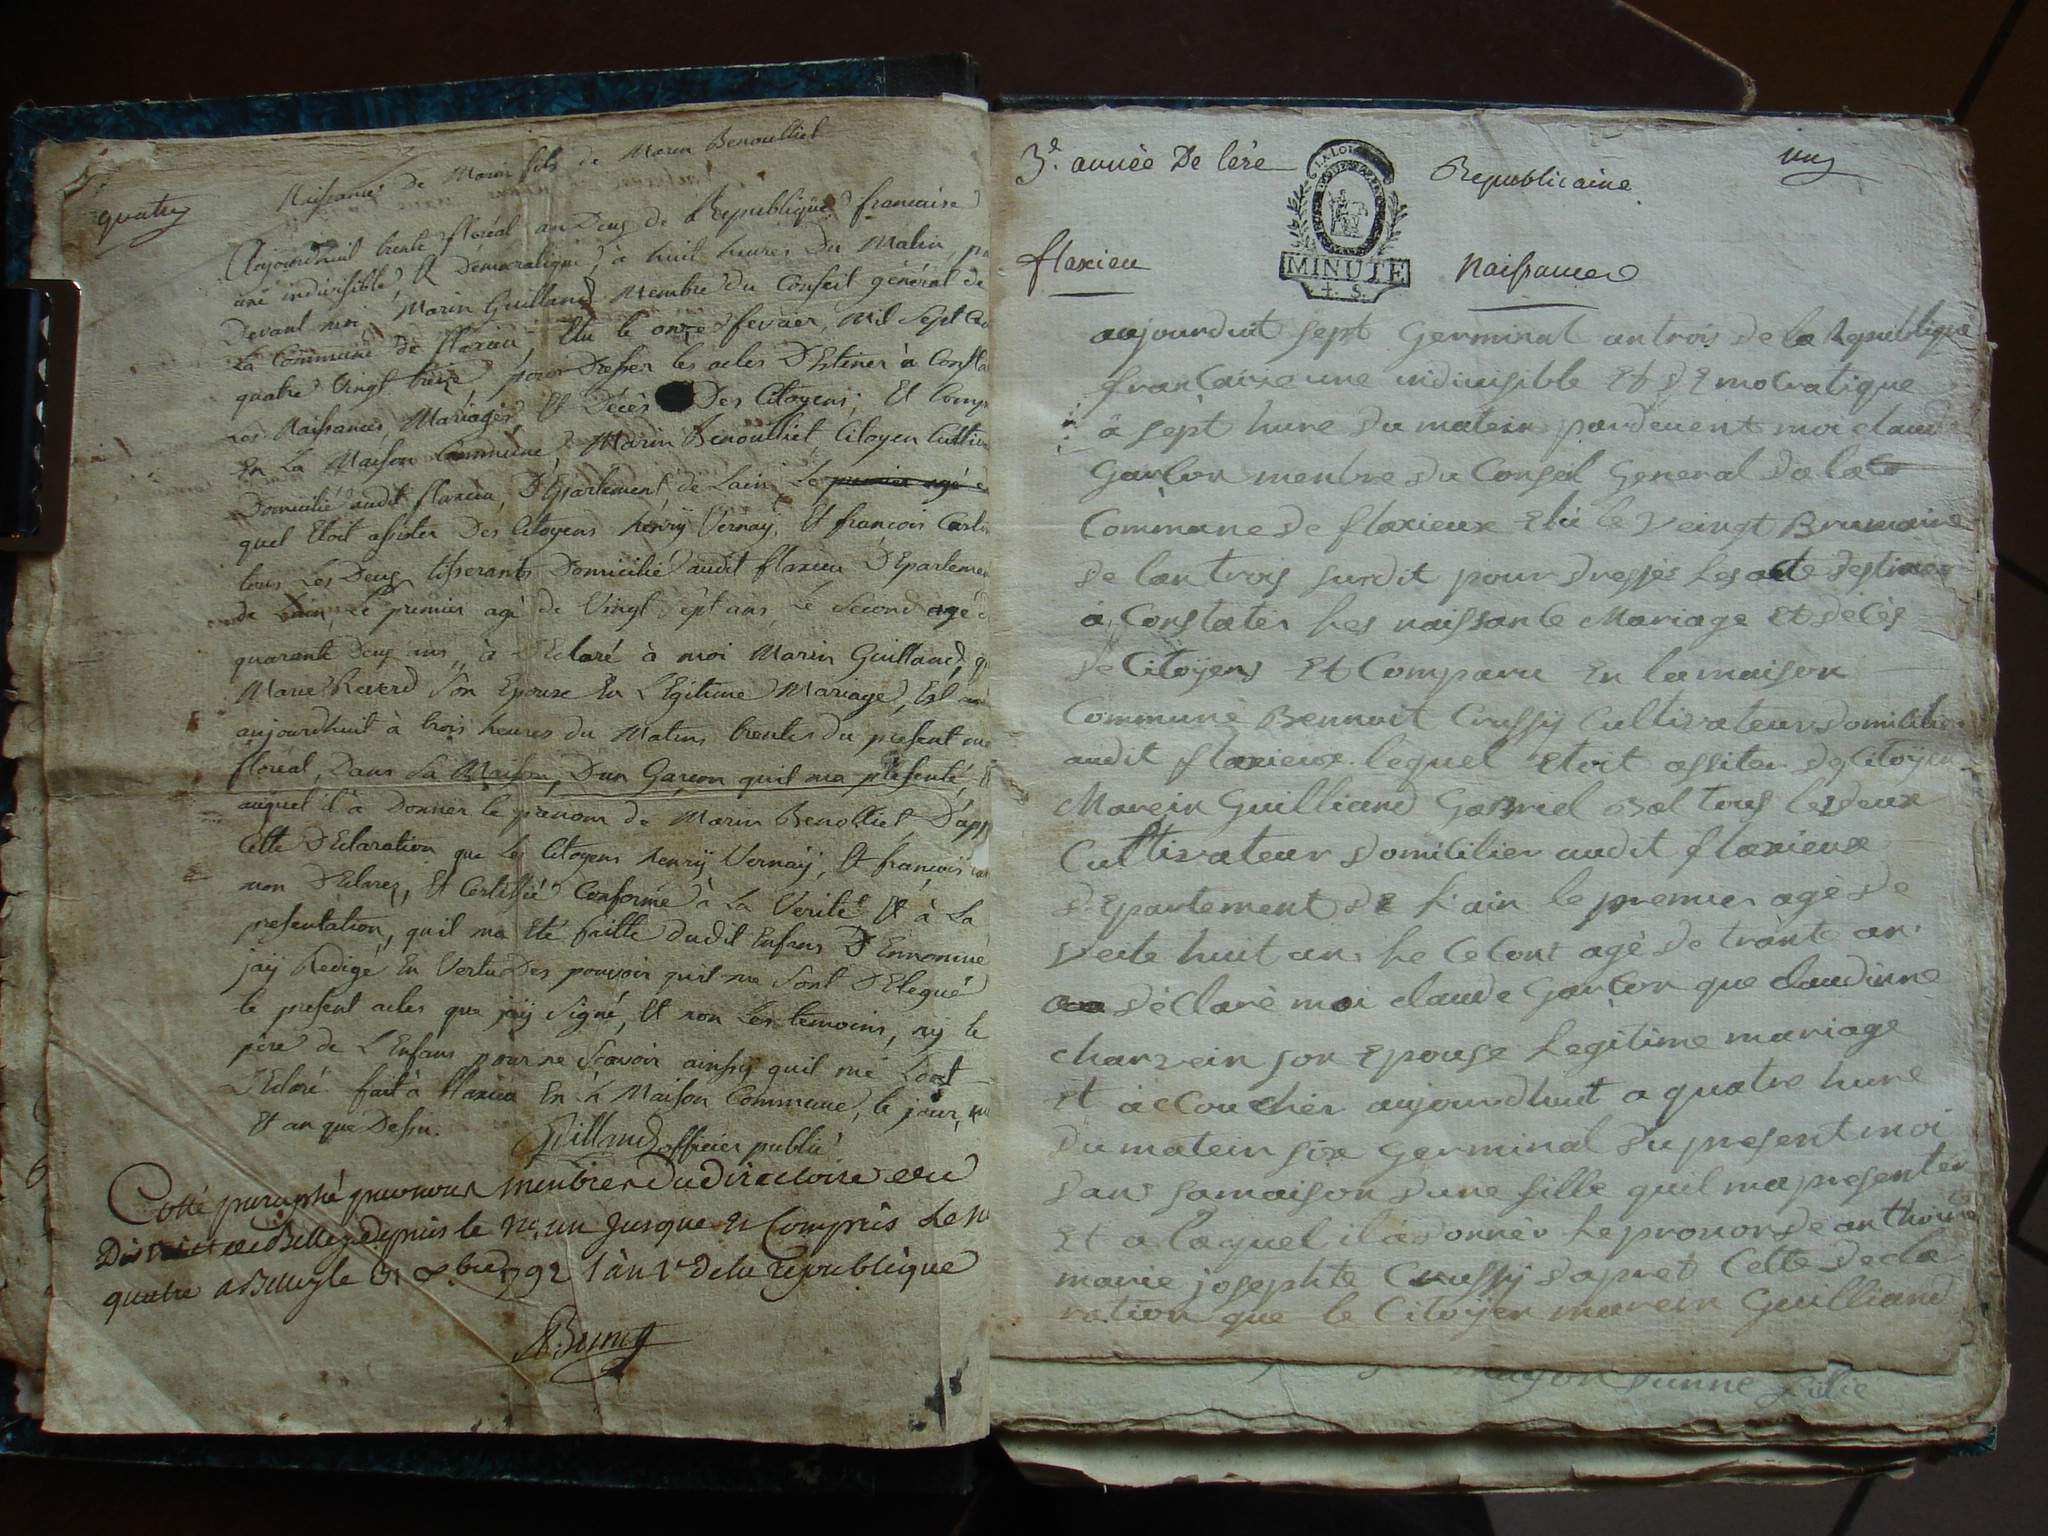 quatre
Naissance de Marin fils de Marin Benoulliet
Aujourdhuit trente floréal an Deux de Republique francaise
une indivisible, Et Démocratique, à huit heures Du Matin,
Devant moi, Marin Guilland Membre du Conseil général de
La Commune de flaxieu, Elu le onze fevrier, Mil Sept
quatre Vingt treize pour Dresser les actes D'Estiner à
Les Naissances, Mariages, Et Décès Des Citoyens; Et
En La Maison Commune, Marin Benoulliet Citoyen
Domicilié audit flaxieu, D'Epartement de Lain, Le premier agé
quel Etoit assister Des Citoyens henrÿ Vernaÿ, Et françois
tous Les Deux tisserants Domicilié audit flaxieu
de Lain, Le premier agé de Vingt Sept ans, Le Second agé
quarante Deux ans, à D'Eclaré à moi Marin Guilland,
Marie Son Epouse En L'Egitime Mariage, Est
aujourdhuit à trois heures du Matins trentes du present
floréal, Dans Sa Maison, D'un Garçon quil ma présenté,
auquel il à Donner le prenom de Marin Benolliet
Cette D'Eclaration que Les Citoyens henrÿ Vernaÿ, Et françois
mon D'Eclarez, Et Certiffié Conforme à La Verité Et à La
presentation, quil ma Eté faitte dudit Enfans
jaÿ Redigé En Vertu Des pouvoir quil me Sont D'Elegué
le present actes que jaÿ Signé, Et non Les temoins, nÿ le
père de L'Enfans pour ne Scavoir ainsy quil me Lont
D'Eclaré fait à flaxieu En La Maison Commune, le jour,
Et an que Dessu.
Guilland officier public
Cotté paraphé par nous membre du directoire du
District de Belley depuis le No. un Jusque Et Compris Le
quatre a Belley le 8bre 1792 l'an 1er de la Republique
3e. année De lère Republicaine
un
LA LOI
MINUTE
4. S.
flaxieu Naissances
aujourduit sept Germinal an trois de la Republique
francaise une indiuisible Et dEmocratique
à sept hure du matein pardeuent moi claude
Garçon menbre du Conseil General de la
Commune de flaxieux Elu le veingt Brumaire
de lan trois surdit pour dresser les acte destiner
à Constater les naissante Mariage Et décès
de Citoÿens Et Comparu En la maison
Commune Bennoit Crussÿ Cultivateur domicilier
audit flaxieux lequel Etoit assiter des Citoÿen
Marein Guilliand Gabriel Bal tous les deux
Cultivateur domicilier audit flaxieux
dEpartement dE l'ain le premier agè de
huit an le Cecont agè de trante an
dèclarè moi claude Garçon que claudinne
charvein son Epouse legitime mariage
Et à ccoucher aujourdhuit a quatre hure
du matein six germinal du present moi
dans samaison dune fille quil ma presenter
Et a laquel il a donner le pronon de anthoine
marie josephte Crussÿ dapret Cette decla
ration que le Citoÿen marein Guilliand
dunne fillie